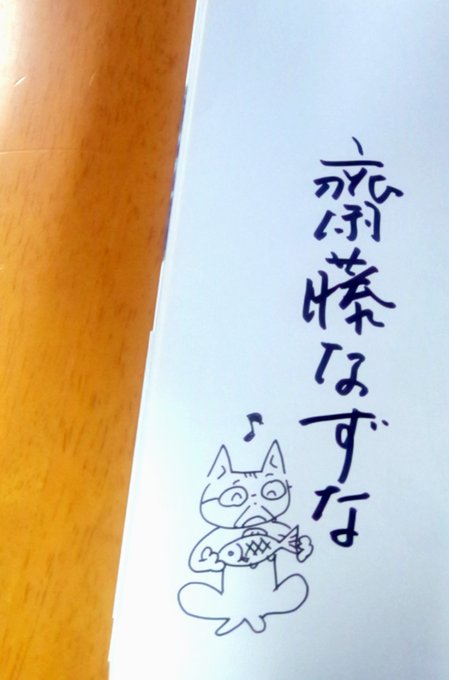 齋藤なずな